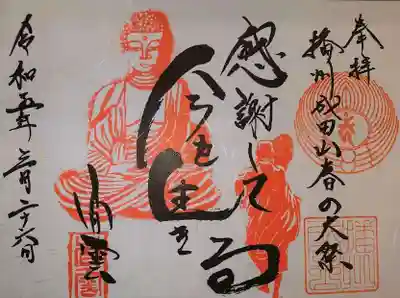 奉拝
播州成田山春の大祭
感謝して
今を生き
雲
令和五年三月二十六日